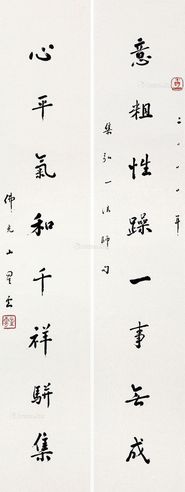 意粗性躁一事無成
二〇〇〇年
集弘一法師句
心平氣和千祥駢集
佛光山星雲